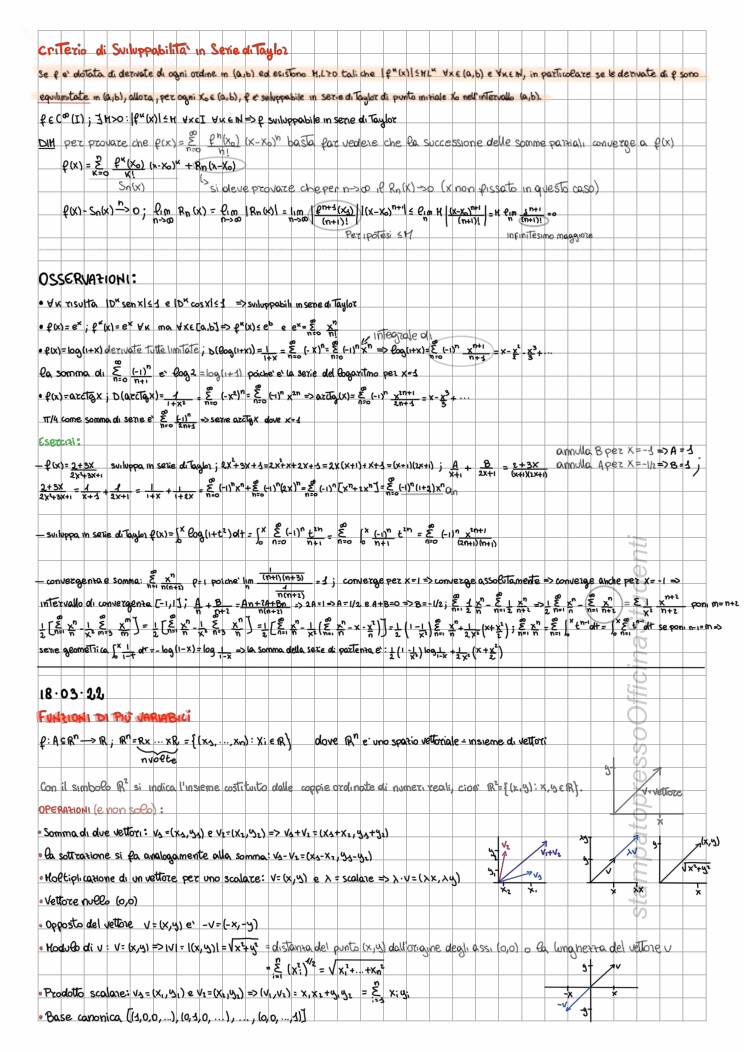 Criterio di Sviluppabilità in Serie di Taylor
Se f è dotata di derivate di ogni ordine in (a,b) ed esistono M,L>0 tali che |fᵏ(x)|≤MLᵏ ∀x∈(a,b) e ∀k∈N, in particolare se le derivate di f sono
equilimitate in (a,b), allora, per ogni x₀∈(a,b), f è sviluppabile in serie di Taylor di punto iniziale x₀ nell'intervallo (a,b).
f∈C^∞(I) ; ∃M>0: |fᵏ(x)|≤M ∀x∈I ∀k∈N ⇒ f sviluppabile in serie di Taylor
DIM per provare che f(x)= Σ_{n=0}^∞ fⁿ(x₀)/n! (x-x₀)ⁿ basta far vedere che la successione delle somme parziali converge a f(x)
f(x)= Σ_{k=0}^n fᵏ(x₀)/k! (x-x₀)ᵏ + Rn(x-x₀)
Sn(x) ↳ si deve provare che per n→∞ il Rn(x)→0 (x non fissato in questo caso)
f(x)-Sn(x) →ⁿ 0 ; lim_{n→∞} Rn(x) = lim_{n→∞} |Rn(x)| = lim_{n→∞} |fⁿ⁺¹(x₁)/(n+1)!| |(x-x₀)ⁿ⁺¹| ≤ lim_n M |(x-x₀)ⁿ⁺¹/(n+1)!| = M lim_n Lⁿ⁺¹/(n+1)! = 0
Per ipotesi ≤M infinitesimo maggiore
OSSERVAZIONI:
• ∀k risulta |Dᵏ sen x|≤1 e |Dᵏ cos x|≤1 ⇒ sviluppabili in serie di Taylor
• f(x)=eˣ ; fᵏ(x)=eˣ ∀k ma ∀x∈[a,b] ⇒ fᵏ(x)≤eᵇ e eˣ= Σ_{n=0}^∞ xⁿ/n!
integrale di
• f(x)=log(1+x) derivate tutte limitate ; D(log(1+x))= 1/(1+x) = Σ_{n=0}^∞ (-x)ⁿ = Σ_{n=0}^∞ (-1)ⁿxⁿ ⇒ log(1+x)= Σ_{n=0}^∞ (-1)ⁿ xⁿ⁺¹/(n+1) = x - x²/2 + x³/3 + ...
la somma di Σ_{n=0}^∞ (-1)ⁿ/(n+1) e' log2 = log(1+1) poiché è la serie del logaritmo per x=1
• f(x)=arctgx ; D(arctgx)= 1/(1+x²) = Σ_{n=0}^∞ (-x²)ⁿ = Σ_{n=0}^∞ (-1)ⁿ x²ⁿ ⇒ arctg(x)= Σ_{n=0}^∞ (-1)ⁿ x²ⁿ⁺¹/(2n+1) = x - x³/3 + ...
π/4 come somma di serie e' Σ_{n=0}^∞ (-1)ⁿ/(2n+1) ⇒ serie arctgx dove x=1
Esercizi:
annulla B per x=-1 ⇒ A=1
— f(x)= (2+3x)/(2x²+3x+1) sviluppa in serie di Taylor ; 2x²+3x+1=2x²+x+2x+1=2x(x+1)+x+1=(x+1)(2x+1) ; A/(x+1) + B/(2x+1) = (2+3x)/(x+1)(2x+1) annulla A per x=-1/2 ⇒ B=1 ;
(2+3x)/(2x²+3x+1) = 1/(x+1) + 1/(2x+1) = 1/(1+x) + 1/(1+2x) = Σ_{n=0}^∞ (-1)ⁿxⁿ + Σ_{n=0}^∞ (-1)ⁿ(2x)ⁿ = Σ_{n=0}^∞ (-1)ⁿ[xⁿ+2xⁿ] = Σ_{n=0}^∞ (-1)ⁿ(1+2)xⁿ an
— sviluppa in serie di Taylor f(x)= ∫₀ˣ log(1+t²)dt = ∫₀ˣ Σ_{n=0}^∞ (-1)ⁿ t²ⁿ/(n+1) = Σ_{n=0}^∞ ∫₀ˣ (-1)ⁿ/(n+1) t²ⁿ = Σ_{n=0}^∞ (-1)ⁿ x²ⁿ⁺¹/(2n+1)(n+1)
— convergenza e somma: Σ_{n=1}^∞ xⁿ/n(n+2) ρ=1 poiché lim (1/(n+1)(n+3))/(1/n(n+2)) = 1 ; converge per x=1 ⇒ converge assolutamente ⇒ converge anche per x=-1 ⇒
intervallo di convergenza [-1,1] ; A/n + B/(n+2) = (An+2A+Bn)/n(n+2) ⇒ 2A=1 ⇒ A=1/2 e A+B=0 ⇒ B=-1/2 ; Σ_{n=1}^∞ 1/2 xⁿ/n - Σ_{n=1}^∞ 1/2 xⁿ/(n+2) ⇒ 1/2 Σ_{n=1}^∞ xⁿ/n - Σ_{n=1}^∞ xⁿ/(n+2) = Σ_{n=1}^∞ 1/x² xⁿ⁺²/(n+2) poni m=n+2
1/2 [Σ_{n=1}^∞ xⁿ/n - 1/x² Σ_{m=3}^∞ xᵐ/m] = 1/2 [Σ_{n=1}^∞ xⁿ/n - 1/x² Σ_{n=3}^∞ xⁿ/n] = 1/2 [Σ_{n=1}^∞ xⁿ/n - 1/x² (Σ_{n=1}^∞ xⁿ/n - x - x²/2)] = 1/2 (1 - 1/x²) Σ_{n=1}^∞ xⁿ/n + 1/2x² (x + x²/2) ; Σ_{n=1}^∞ xⁿ/n = Σ_{n=1}^∞ ∫₀ˣ tⁿ⁻¹ dt = ∫₀ˣ Σ_{n=1}^∞ tⁿ⁻¹ dt se poni n-1=m ⇒
serie geometrica ∫₀ˣ 1/(1-t) dt = -log(1-x) = log 1/(1-x) ⇒ la somma della serie di partenza e': 1/2 (1 - 1/x²) log 1/(1-x) + 1/2x² (x + x²/2)
18·03·22
FUNZIONI DI PIÙ VARIABILI
f: A⊆Rⁿ → R ; Rⁿ=Rx...xR = {(x₁, ..., xn) : xi∈R} dove Rⁿ è uno spazio vettoriale = insieme di vettori
n volte
Con il simbolo R² si indica l'insieme costituito dalle coppie ordinate di numeri reali, cioè R²={(x,y) : x,y∈R}.
y
v=vettore
x
OPERAZIONI (e non solo) :
• Somma di due vettori: v₁=(x₁,y₁) e v₂=(x₂,y₂) ⇒ v₁+v₂=(x₁+x₂, y₁+y₂)
• la sottrazione si fa analogamente alla somma: v₁-v₂=(x₁-x₂, y₁-y₂)
• Moltiplicazione di un vettore per uno scalare: v=(x,y) e λ=scalare ⇒ λ·v=(λx, λy)
• Vettore nullo (0,0)
• Opposto del vettore v=(x,y) e' -v=(-x,-y)
• Modulo di v : v=(x,y) ⇒ |v| = |(x,y)| = √x²+y² = distanza del punto (x,y) dall'origine degli assi (0,0) o la lunghezza del vettore v
= Σ_{i=1}^n (xi²)^{1/2} = √x₁²+...+xn²
• Prodotto scalare: v₁=(x₁,y₁) e v₂=(x₂,y₂) ⇒ (v₁,v₂) = x₁x₂+y₁y₂ = Σ_{i=1}^n xiyi
• Base canonica ([1,0,0,...), (0,1,0, ...), ..., (0,0, ...,1)]
y₂ y₁ v₂ v₁+v₂ v₁ x₂ x₁
λy y λv v x λx
y (x,y) √x²+y² x
y v -x x -v -y
stampatopressoOfficinaStudenti